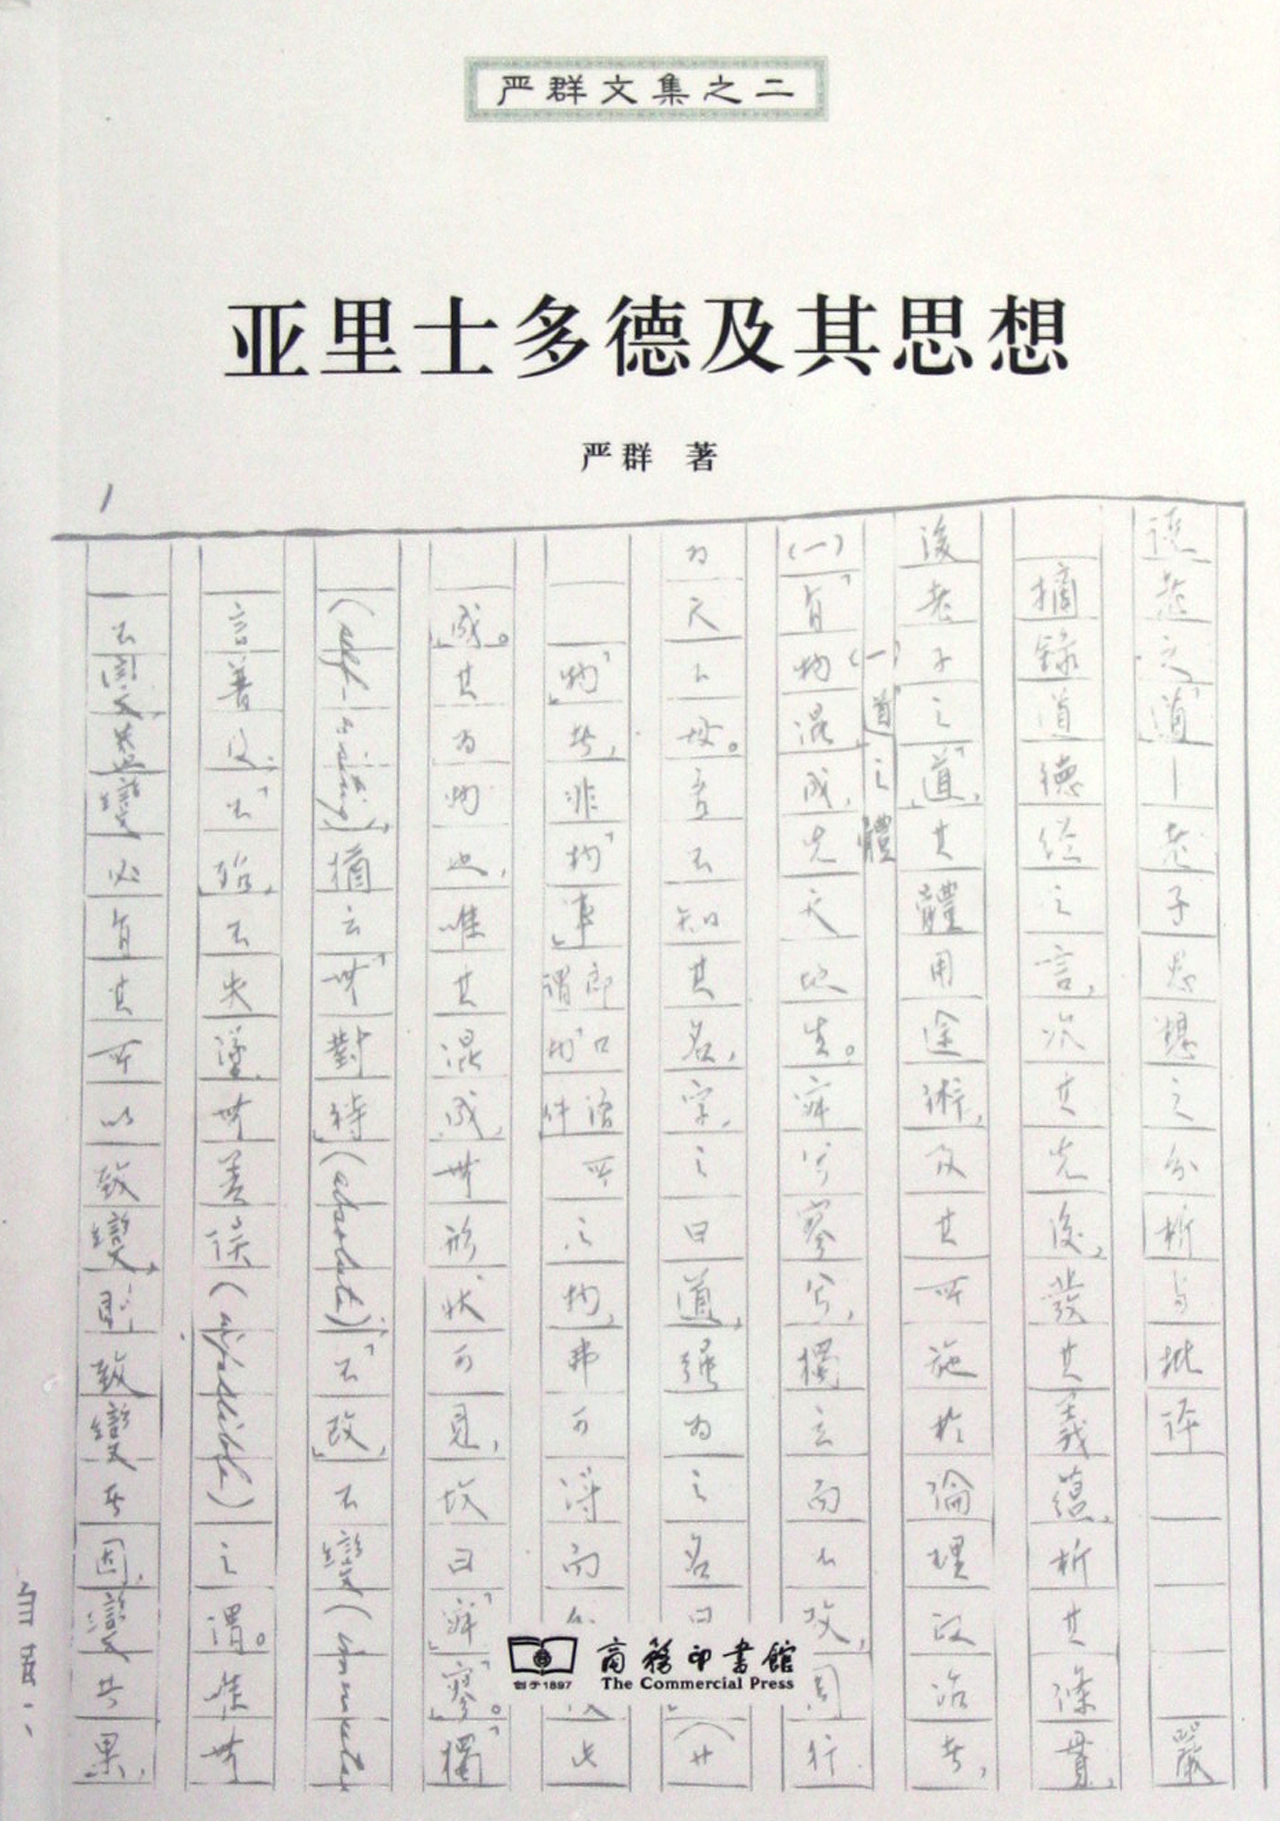 严群文集之二
亚里士多德及其思想
严群 著
說老之「道」—老子思想之分析与批评 嚴
摘錄道德经之言,次其先後,發其義蘊,析其條貫,
後老子之「道」,其體用途術,及其所施於倫理政治者,
(一)道之體
(一)「有物混成,先天地生。寂兮寥兮,獨立而不改,周行
为天下母。吾不知其名,字之曰道,强为之名曰 (廿
「物」者,非「物事」即口语所謂「物件」之物,弗可得而 此
成。」其为物也,唯其混成,無形状可見,故曰「寂」「寥」。「獨
(self-existing),猶云「無對待」(absolute);「不改」,不變(immutable
言普及;「不殆」,不失墜無差误(infallible)之謂。唯無
變必有其所以致變,則致變者因,變其果,
自
創于1897
商務印書館
The Commercial Press